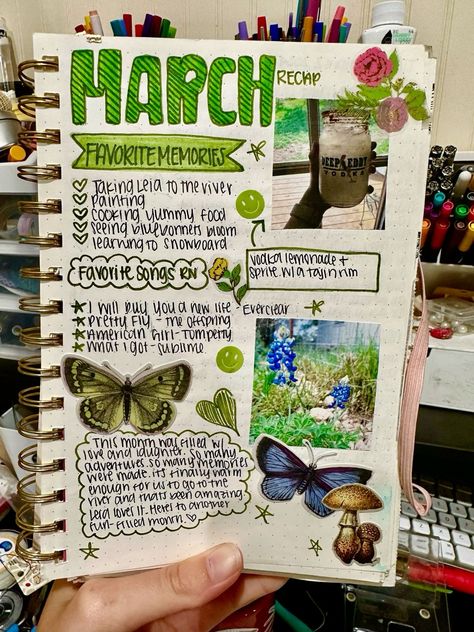 MARCH
RECAP
FAVORITE MEMORIES
Taking Leia to the river
Painting
Cooking yummy food
Seeing bluebonnets bloom
learning to snowboard
DEEP EDDY
VODKA
vodka lemonade +
Sprite w/ a tajin rim
Favorite Songs RN
I will buy you a new life - Everclear
Pretty Fly - The Offspring
American Girl - Tom Petty
What I got - Sublime
This month was filled w/
love and laughter. So many
adventures. So many memories
were made. It's finally warm
enough for us to go to the
river and thats been amazing
Leia loves it. Here's to another
fun-filled month.